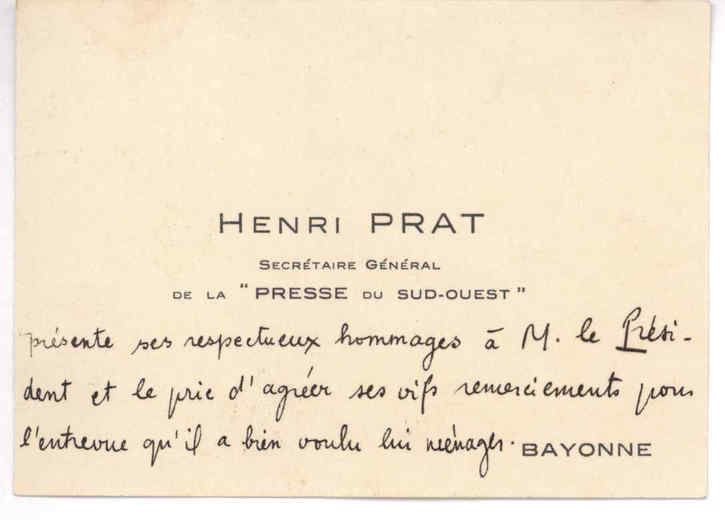 HENRI PRAT
SECRÉTAIRE GÉNÉRAL
DE LA "PRESSE DU SUD-OUEST"
présente ses respectueux hommages à M. le Prési-
dent et le prie d'agréer ses vifs remerciements pour
l'entrevue qu'il a bien voulu lui ménager.
BAYONNE